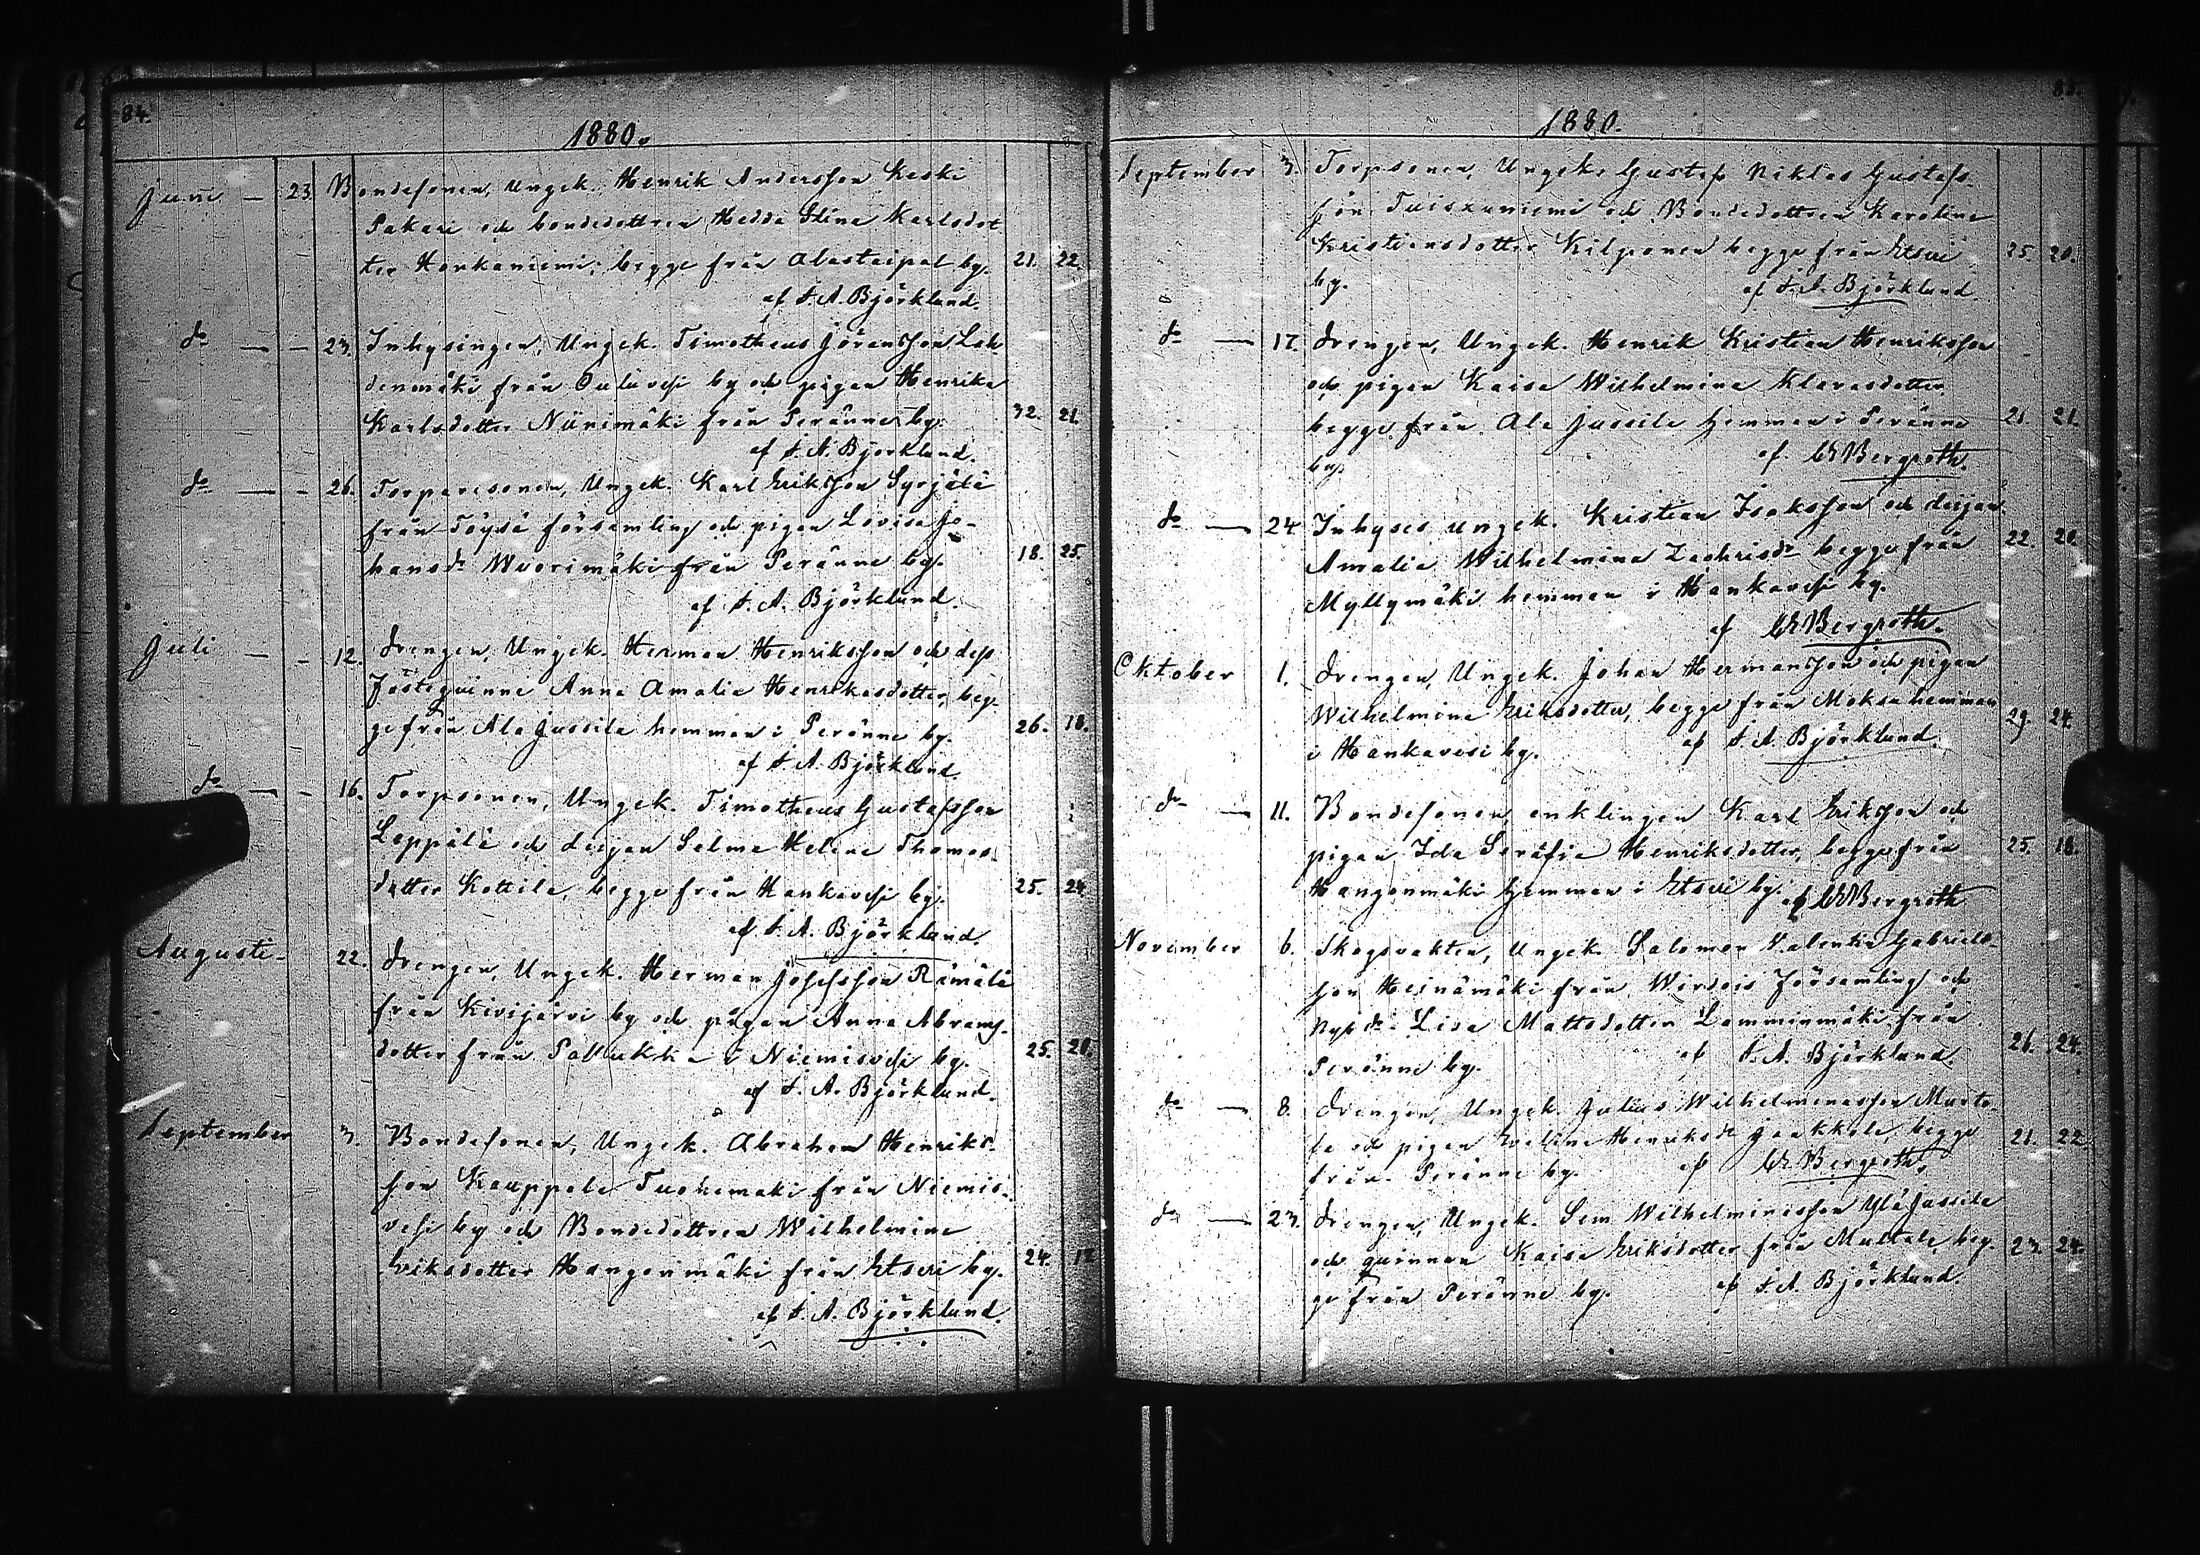 84.
1880.
Juni — 23. Bondesonen, Ungk. Henrik Andersson Keski
Pakari och bondedottren Hedda Stina Karlsdot
ter Honkaniemi, begge från Alastaipal by. 21. 22.
af F. A. Björklund.
do — 23. Inhysingen, Ungk. Timotheus Göransson Leh-
denmäki från Ouluvesi by och pigan Henrika
Karlsdotter Niinimäki från Peränne by. 32. 21.
af F. A. Björklund.
do — 26. Torparesonen, Ungk. Karl Eriksson Syrjälä
från Töysä församling och pigan Lovisa Jo-
hansdr Wuorimäki från Peränne by. 18. 25.
af F. A. Björklund.
Juli — 12. Drengen, Ungk. Herman Henriksson och dess
fästeqvinna Anna Amalia Henriksdotter, beg-
ge från Ala Jussila hemman i Peränne by. 26. 18.
af F. A. Björklund.
do — 16. Torpsonen, Ungk. Timotheus Gustafsson
Leppälä och dejan Selma Helena Thomas-
dotter Kottila, begge från Hankavesi by. 25. 24.
af F. A. Björklund.
Augusti — 22. Drengen, Ungk. Herman Josefsson Rämälä
från Kivijärvi by och pigan Anna Abrams-
dotter från Pallukka i Niemisvesi by. 25. 28.
af F. A. Björklund.
September 3. Bondesonen, Ungk. Abraham Henriks-
son Kauppala Tuohemäki från Niemis-
vesi by och Bondedottren Wilhelmina
Eriksdotter Hangonmäki från Etseri by. 24. 17
af F. A. Björklund.
85.
1880.
September 3. Torpsonen, Ungk. Gustaf Niklas Gustafs-
son Tuiskuniemi och Bondedottren Karolina
Kristiansdotter Kilponen begge från Etseri 25. 20.
by. af F. A. Björklund.
do — 17. Drengen, Ungk. Henrik Kristian Henriksson
och pigan Kaisa Wilhelmina Klavesdotter
begge från Ala Jussila hemman i Peränne 21. 21.
by. af Ch Bergroth.
do — 24. Inhyses ungk. Kristian Isaksson och dejan
Amalia Wilhelmina Zachrisdr begge från 22. 20.
Myllymäki hemman i Hankavesi by.
af Ch Bergroth.
Oktober 1. Drengen, Ungk. Johan Hermansson och pigan
Wilhelmina Eriksdotter, begge från Moksa hemman
i Hankavesi by. af F. A. Björklund. 29. 24.
do — 11. Bondesonen, enklingen Karl Eriksson och
pigan Ida Serafia Henriksdotter, begge från 25. 18.
Hangonmäki hemman i Etseri by. af Ch Bergroth
November 6. Skogsvakten, Ungk. Salomon Valentin Gabriels-
son Heinämäki från Wirdois församling och
Nyb dr Lisa Mattsdotter Lamminmäki från
Peränne by. af F. A. Björklund 26. 24.
do — 8. Drengen, Ungk. Julius Wilhelminasson Musto-
la och pigan Evelina Henriksdr Jaakkola, begge 21. 22
från Peränne by. af Ch Bergroth.
do — 23. Drengen, Ungk. Sem Wilhelminasson Yläjussila
och qvinnan Kaisa Eriksdotter från Mattala, beg- 23. 24.
ge från Peränne by. af F. A. Björklund.